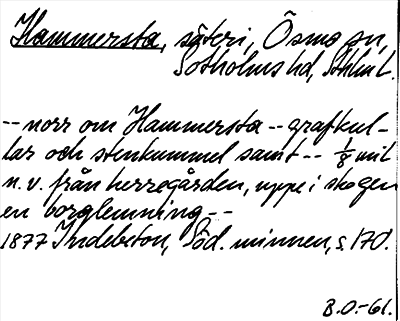 Hammersta, säteri, Ösmo sn,
Sotholms hd, Sthlm L.
-- norr om Hammersta -- grafkul-
lar och stenkummel samt -- 1/8 mil
n.v. från herregården, uppe i skogen
en borglemning --
1877 Indebetou, Söd. minnen, s. 170.
B.O.-61.